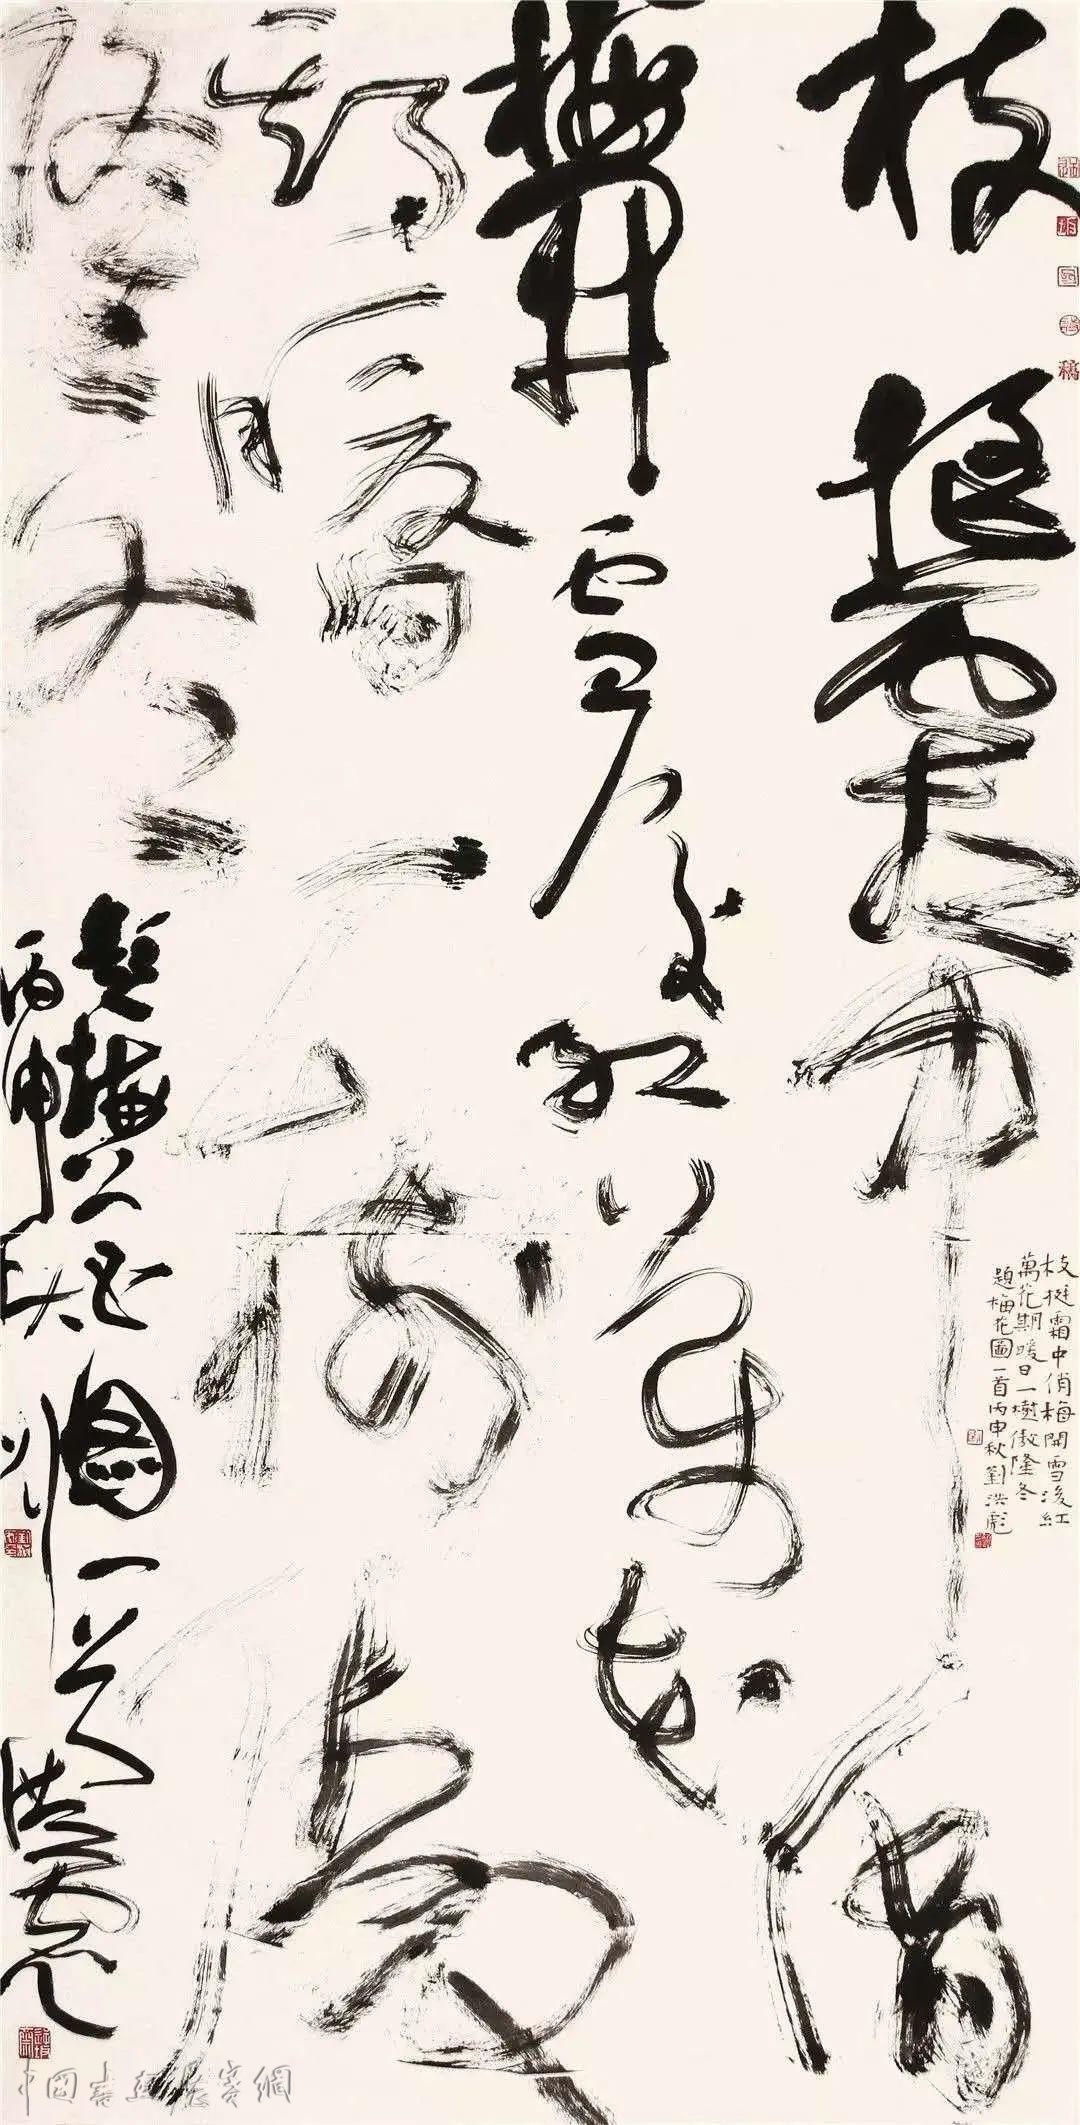 枝挺霜中俏
梅開雪後紅萬花
期暖日一樹傲
隆冬
題梅花圖一首洪彪
丙申秋
枝挺霜中俏梅開雪後紅
萬花期暖日一樹傲隆冬
題梅花圖一首丙申秋劉洪彪
中國書畫展賽網